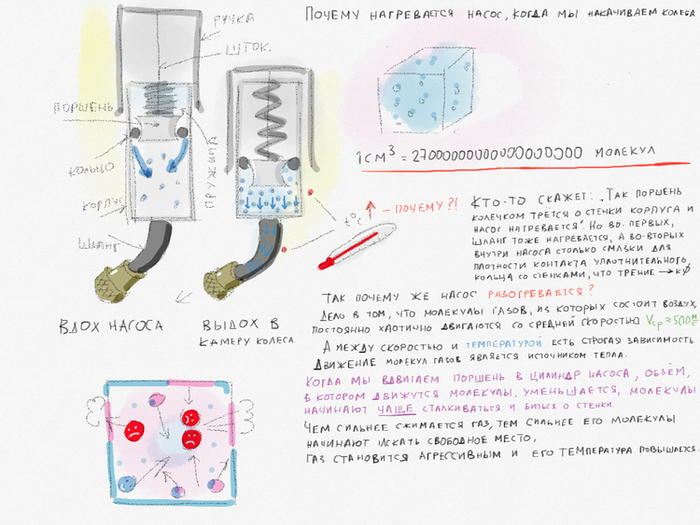 Почему нагревается насос, когда мы накачиваем колеса
ручка
шток.
поршень
кольцо
корпус
шланг
пружина
вдох насоса
выдох в
камеру колеса
1 см³ = 27000000000000000000 молекул
t°c
– почему?!
Кто-то скажет: „Так поршень
колечком трется о стенки корпуса и
насос нагревается". Но во-первых,
шланг тоже нагревается, а во-вторых
внутри насоса столько смазки для
плотности контакта уплотнительного
кольца со стенками, что трение →
Так почему же насос разогревается?
Дело в том, что молекулы газов, из которых состоит воздух,
постоянно хаотично двигаются со средней скоростью Vср ≈ 500 м/с
А между скоростью и температурой есть строгая зависимость
Движение молекул газов является источником тепла.
Когда мы вдвигаем поршень в цилиндр насоса, объём,
в котором движутся молекулы, уменьшается, молекулы
начинают чаще сталкиваться и биться о стенки.
Чем сильнее сжимается газ, тем сильнее его молекулы
начинают искать свободное место,
газ становится агрессивным и его температура повышается.